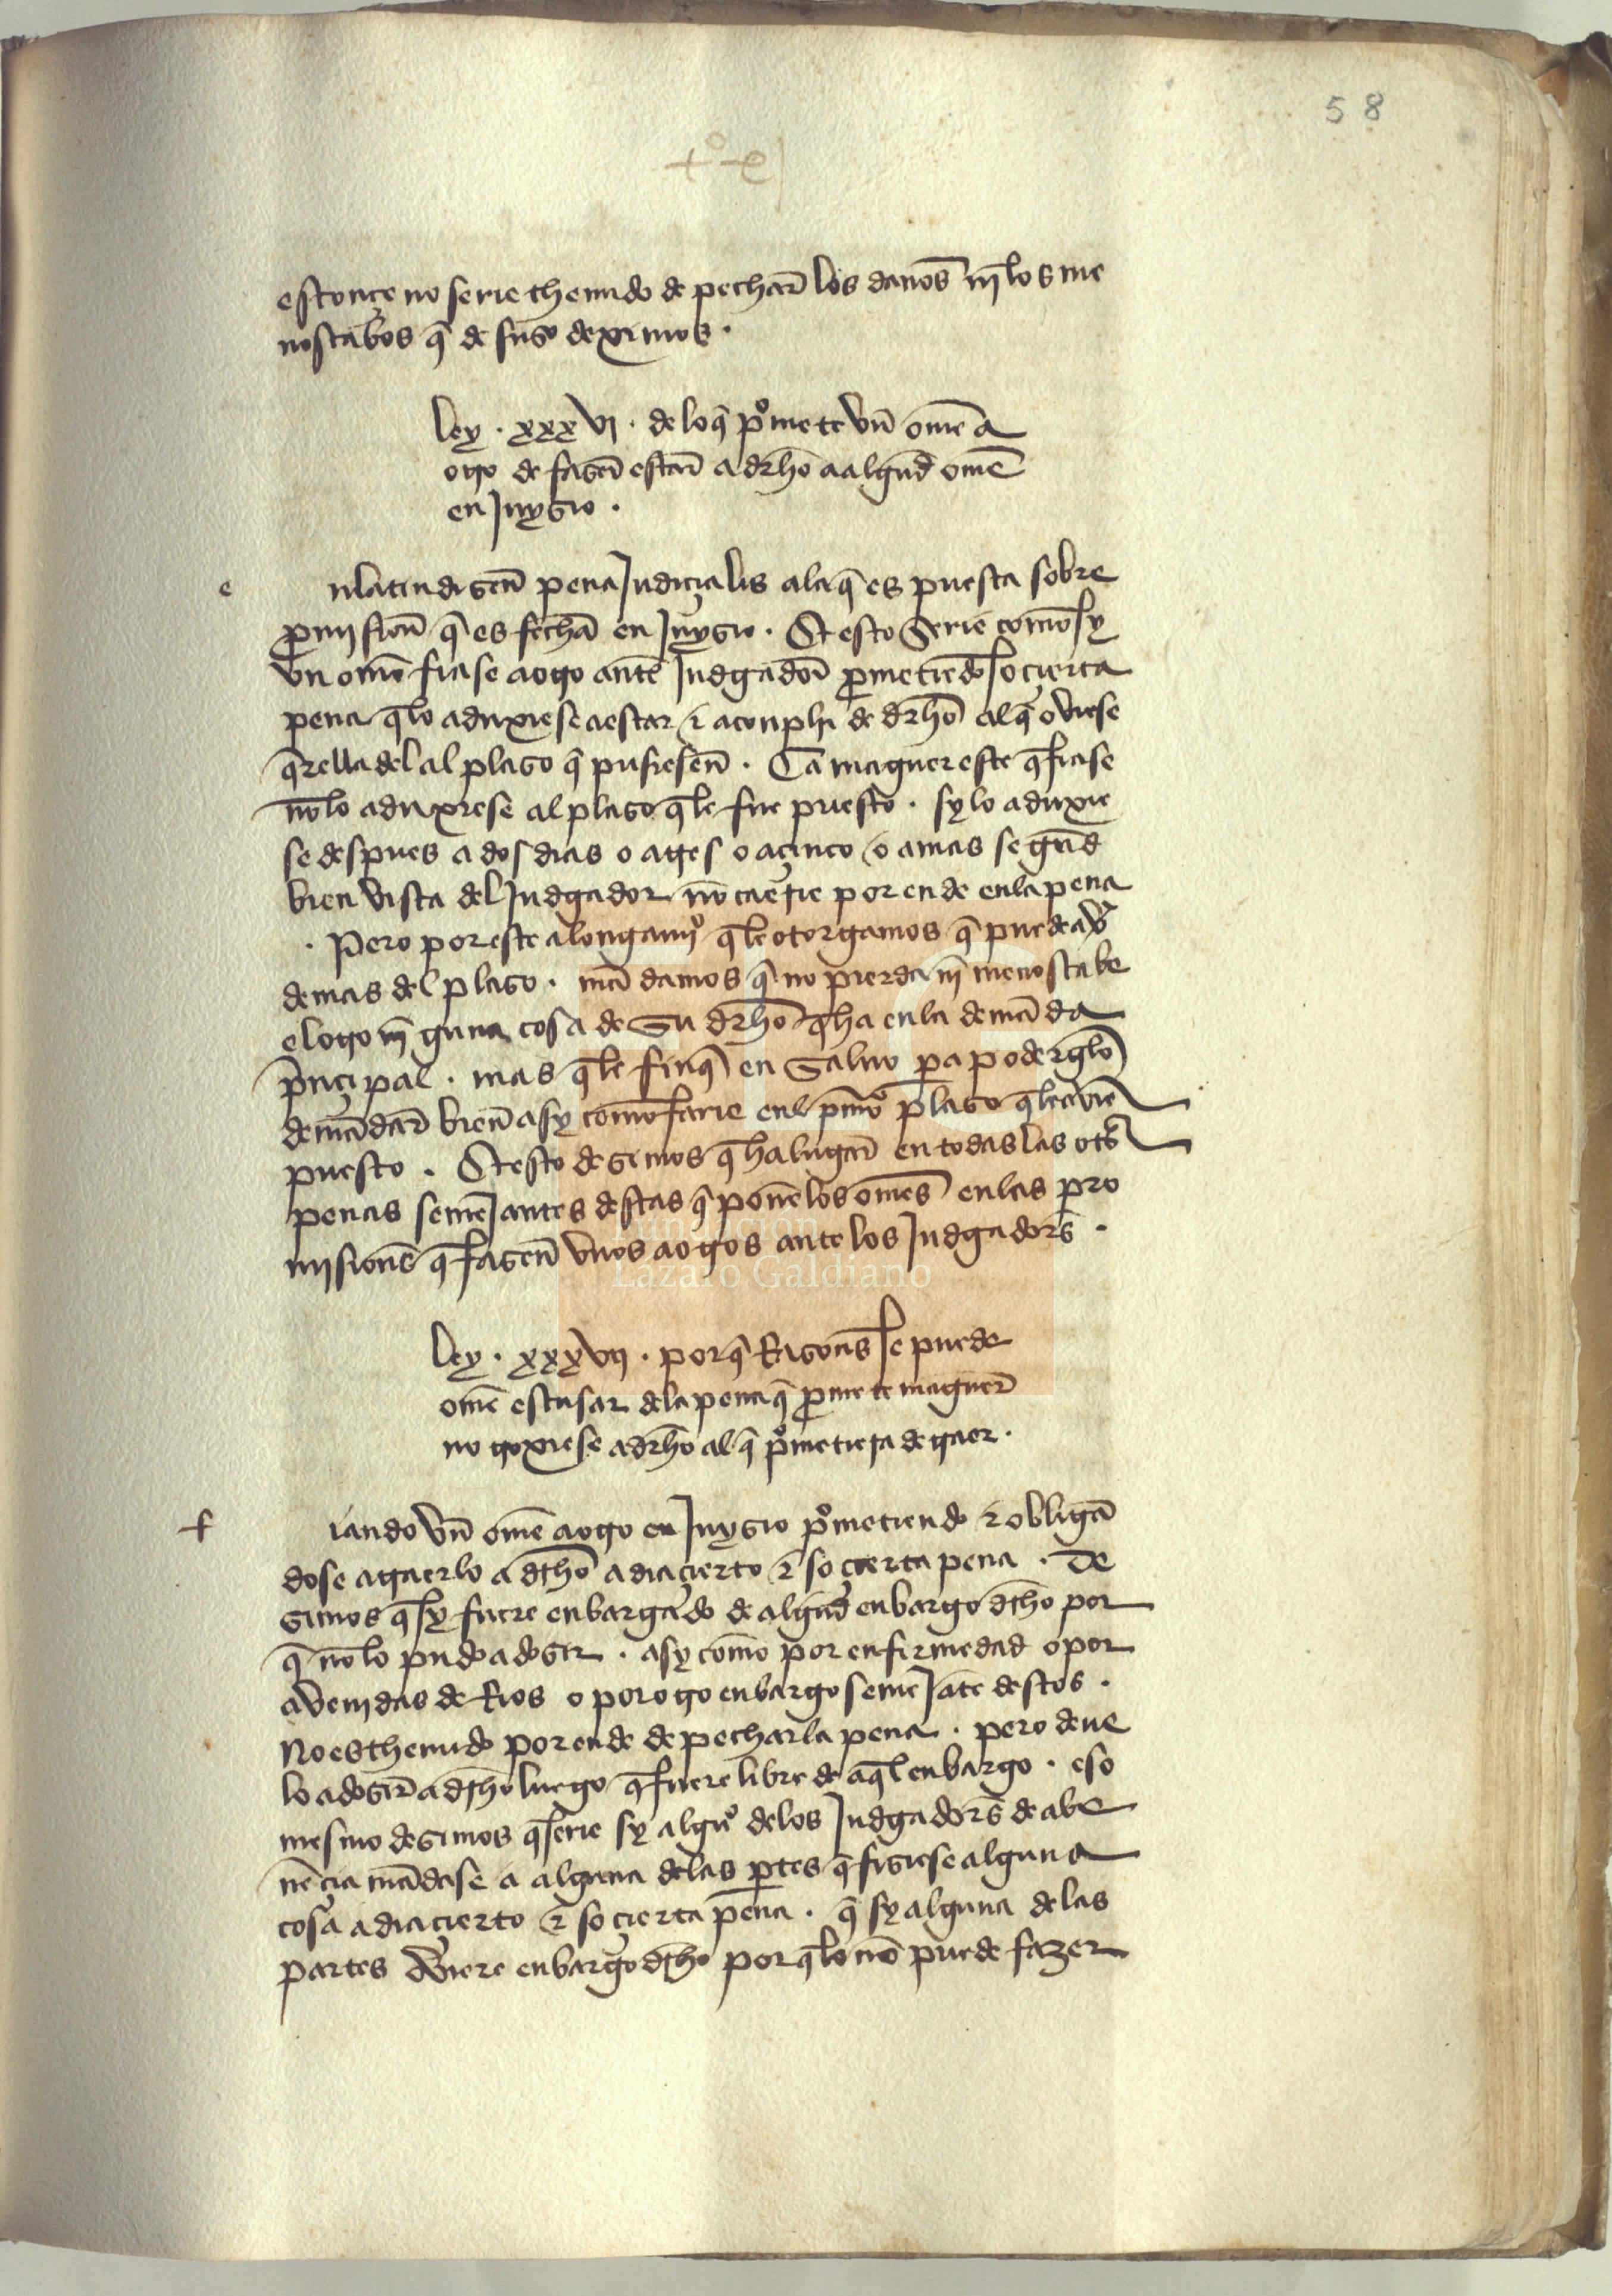 58
estonçe no serie thenudo de pechar̄ los danos̄ nī los me
nostabos q̄ de suso deximos .
Ley . xxxvj . de lo q̄ pºmete vn̄ ome a
otro de faser̄ estar̄ a dr̄ho a algud̄ ome
en juysio .
e nlatin disen̄ pena judiçialis a la q̄ es puesta sobre
p̄misiōn q̄ es fecha en juysio . Et esto serie como sy
vn ome fiase a otro ante judgador̄ p̄metiēdo so çierta
pena q̄ lo aduxiese a estar & a conplir de dr̄ho al q̄ oviese
q̄rella del al plaso q̄ pusiesen̄ . Ca maguer este q̄ fiase
nō lo aduxiese al plaso q̄ le fue puesto . sy lo aduxie
se despues a dos dias o a tres o a çinco o a mas segūd
bien vista del judgador nō caerie por ende en la pena
. Pero por este alongamiº q̄ le otorgamos q̄ pueda av̄
demas del plaso . mādamos q̄ no pierda nī menoscabe
el otro nīguna cosa de su dr̄ho q̄ ha en la demāda
p̄nçipal . mas q̄ le finq̄ en saluo pa poder gelo
demādar̄ bien̄ asy como farie en el pm̄o plaso q̄ le avie
puesto . Et esto desimos q̄ ha lugar̄ en todas las ots̄
penas semējantes destas q̄ ponē los omes̄ en las pro
misiones̄ q̄ fasen̄ vnos a otros ante los judgadores̄ .
Fundación
Lázaro Galdiano
Ley . xxxvij . por q̄ Rasones̄ se puede
ome escusar de la pena q̄ p̄mete maguer̄
no troxiese a dr̄ho al q̄ pºmetiera de traer .
f iando vn̄ ome a otro en juysio pºmetiendo & obligā
dose a traerlo a dr̄ho a dia çierto & so çierta pena . De
simos q̄ sy fuere enbargado de algūd enbargo dr̄ho por
q̄ nō lo pudo adosir . asy como por enfermedad o por
avenidas de Rios o por otro enbargo semejāte destos .
No es thenudo por ende de pechar la pena . pero deue
lo adosir̄ a dr̄ho luego q̄ fuere libre de aq̄l enbargo . eso
mesmo desimos q̄ serie sy algūº de los judgadores̄ de abe
nēçia mādase a alguna de las p̄tes q̄ fisiese alguna
cosa a dia çierto & so çierta pena . q̄ sy alguna de las
partes oviere enbargo dr̄ho por q̄ lo nō puede fazer